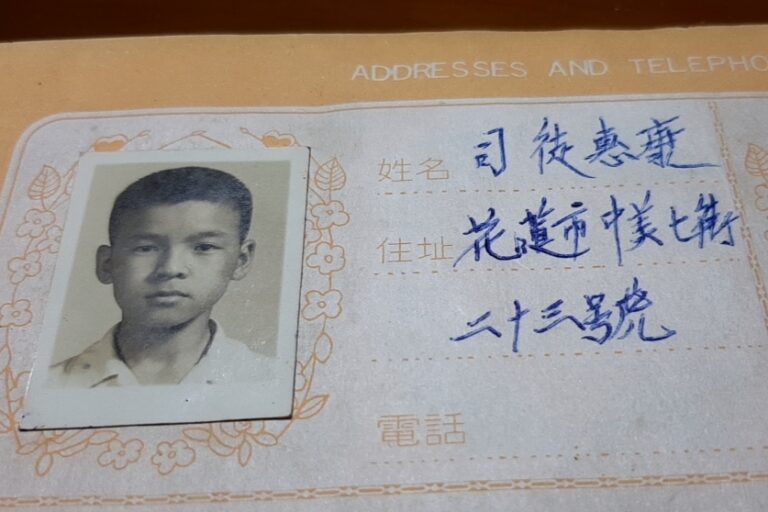 ADDRESSES AND TELEPHO
姓名 司徒惠康
住址 花蓮市中美七街
二十三號
電話